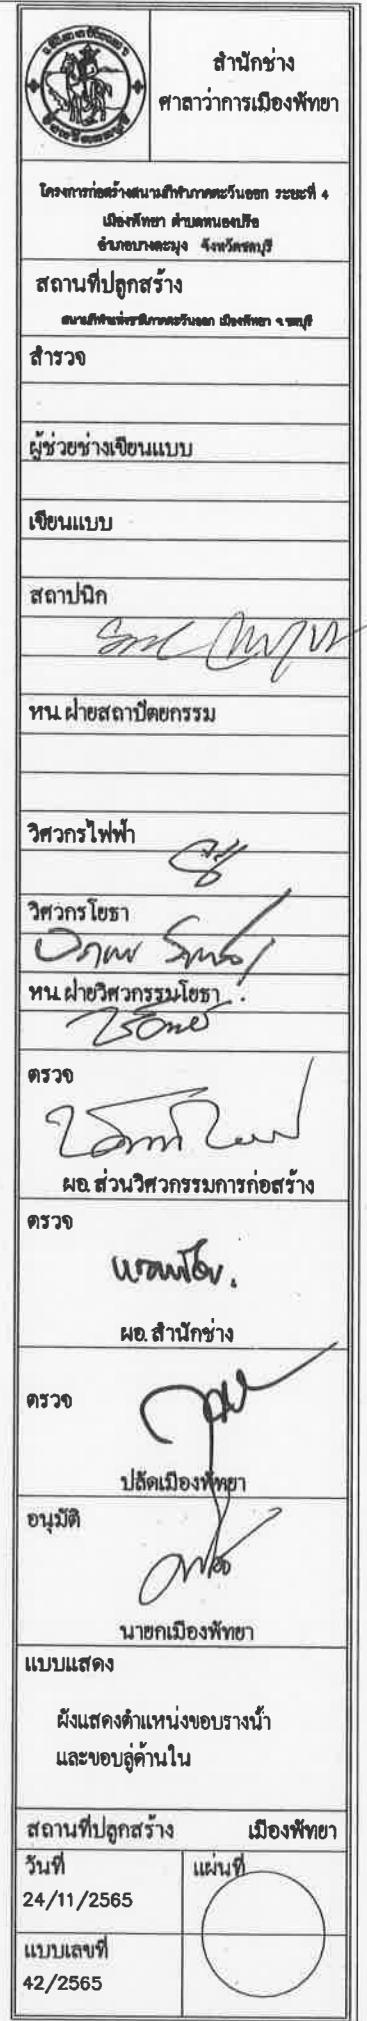 สำนักช่าง
ศาลาว่าการเมืองพัทยา
โครงการก่อสร้างสนามกีฬาภาคตะวันออก ระยะที่ 4
เมืองพัทยา ตำบลหนองปรือ
อำเภอบางละมุง จังหวัดชลบุรี
สถานที่ปลูกสร้าง
สนามกีฬาแห่งชาติภาคตะวันออก เมืองพัทยา จ.ชลบุรี
สำรวจ
ผู้ช่วยช่างเขียนแบบ
เขียนแบบ
สถาปนิก
หน.ฝ่ายสถาปัตยกรรม
วิศวกรไฟฟ้า
วิศวกรโยธา
หน.ฝ่ายวิศวกรรมโยธา
ตรวจ
ผอ.ส่วนวิศวกรรมการก่อสร้าง
ตรวจ
ผอ.สำนักช่าง
ตรวจ
ปลัดเมืองพัทยา
อนุมัติ
นายกเมืองพัทยา
แบบแสดง
ผังแสดงตำแหน่งขอบรางน้ำ
และขอบลู่ด้านใน
สถานที่ปลูกสร้าง เมืองพัทยา
วันที่ แผ่นที่
24/11/2565
แบบเลขที่
42/2565